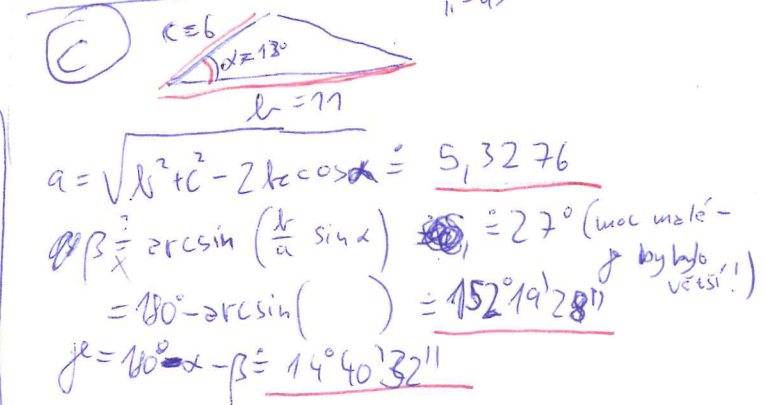 C
c=6
α=13°
b=11
a = √b²+c²-2bc cosα ≐ 5,3276
β ≐ arcsin (b/a sin α) ≐ 27° (moc malé -
γ by bylo
větší!)
= 180° - arcsin( ) ≐ 152°19'28"
γ = 180° - α - β ≐ 14°40'32"